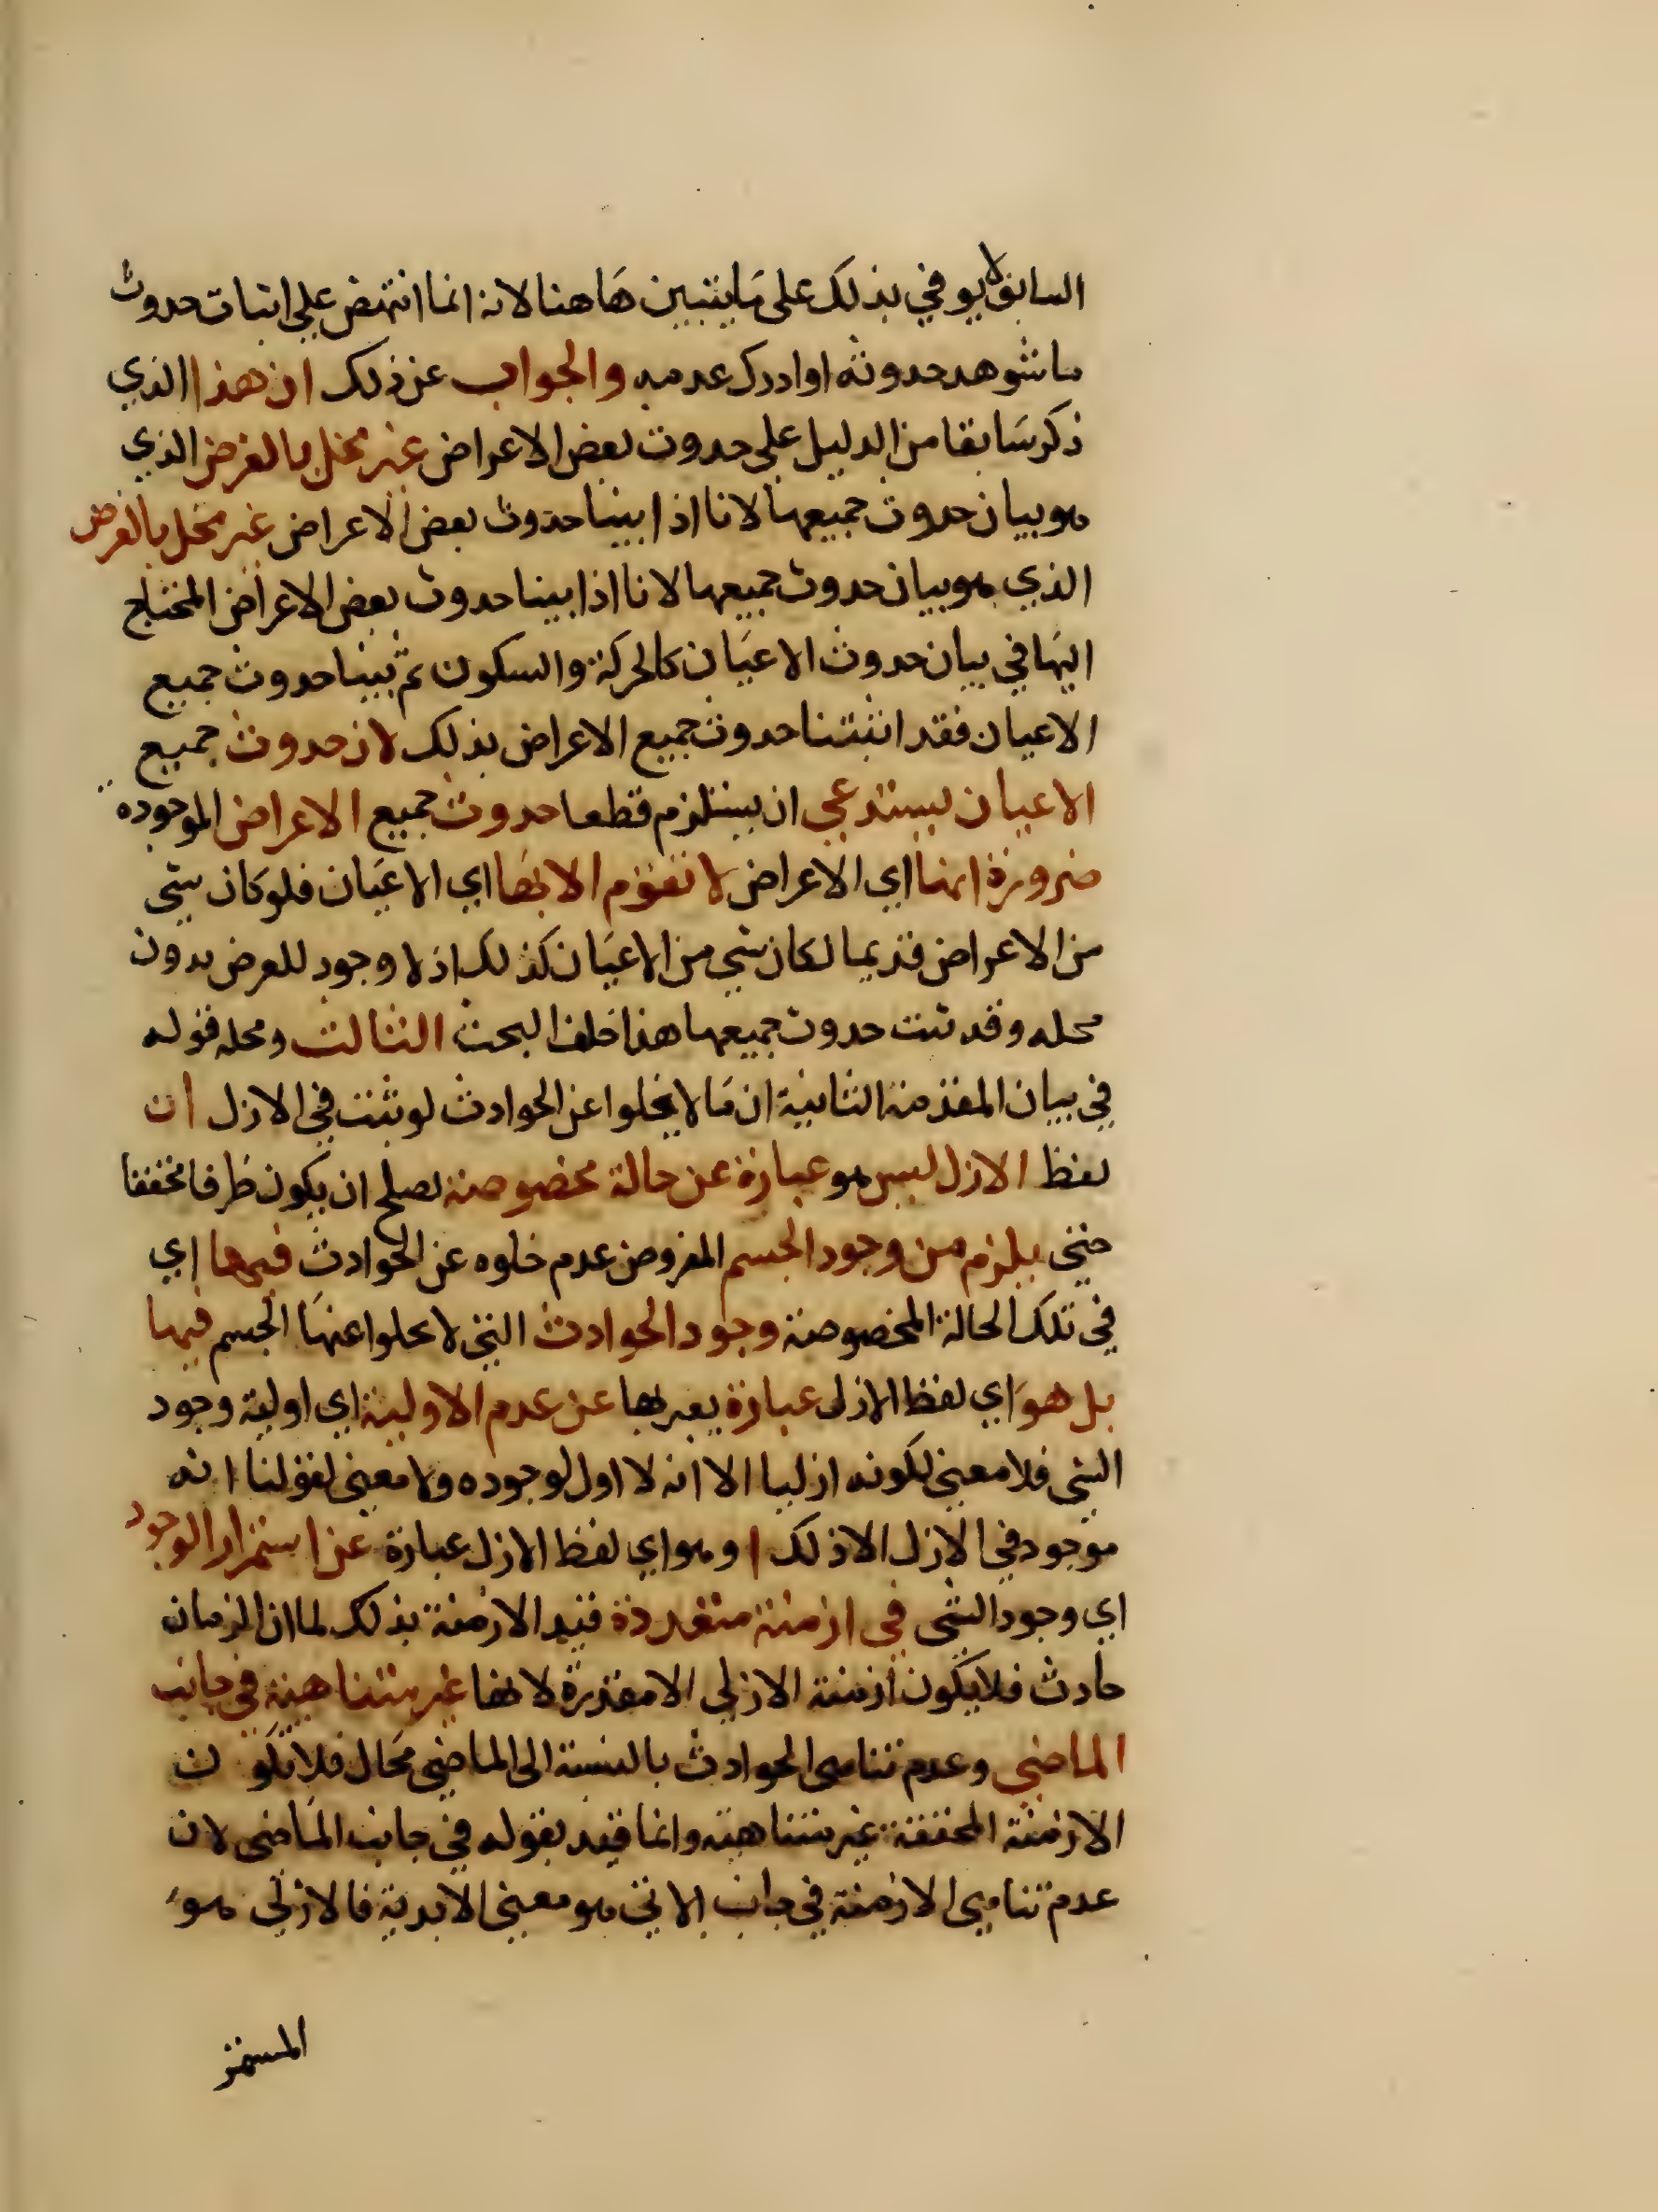 السابق لا يوفي بذلك على ما يتبين هاهنا لانه انما انتهض على اثبات حدوث
ما شوهد حدوثه او ادرك عدمه والجواب عن ذلك ان هذا الذي
ذكر سابقا من الدليل على حدوث بعض الاعراض غير مخل بالغرض الذي
هو بيان حدوث جميعها لانا اذا بينا حدوث بعض الاعراض غير مخل بالغرض
الذي هو بيان حدوث جميعها لانا اذا بينا حدوث بعض الاعراض المحتاج
اليها في بيان حدوث الاعيان كالحركة والسكون ثم بينا حدوث جميع
الاعيان فقد اثبتنا حدوث جميع الاعراض بذلك لان حدوث جميع
الاعيان يستدعي ان يستلزم قطعا حدوث جميع الاعراض الموجوده
ضرورة انها اي الاعراض لا تقوم الا بها اي الاعيان فلو كان شي
من الاعراض قديما لكان شي من الاعيان كذلك اذ لا وجود للعرض بدون
محله وقد ثبت حدوث جميعها هذا خلف البحث الثالث ومحله قوله
في بيان المقدمة الثانية ان ما لا يخلوا عن الحوادث لو ثبت في الازل ان
لفظ الازل ليس هو عبارة عن حالة مخصوصة تصلح ان يكون ظرفا محققا
حتى يلزم من وجود الجسم المفروض عدم خلوه عن الحوادث فيها اي
في تلك الحالة المخصوصة وجود الحوادث التي لا يخلوا عنها الجسم فيها
بل هو اي لفظ الازل عبارة يعبر بها عن عدم الاولية اي اولية وجود
الشي فلا معنى لكونه ازليا الا انه لا اول لوجوده ولا معنى لقولنا انه
موجود في الازل الا ذلك او هو اي لفظ الازل عبارة عن استمرار الوجود
اي وجود الشي في ازمنة متقدرة قيد الازمنة بذلك لما ان الزمان
حادث فلا يكون ازمنة الازلي الا مقدرة لانها غير متناهية في جانب
الماضي وعدم تناهى الحوادث بالنسبة الى الماضي محال فلا تكون
الازمنة المحققة غير متناهية وانما قيد بقوله في جانب الماضى لان
عدم تناهى الازمنة في جانب الاتي هو معنى الابدية فالازلي هو
المستمر